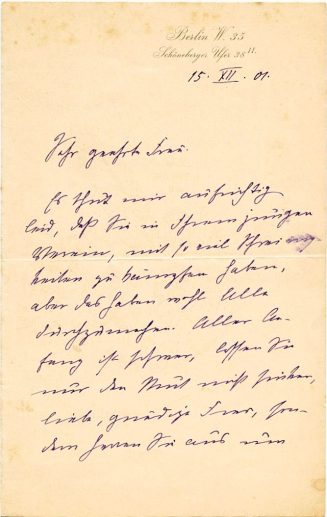 Berlin W. 35
Schöneberger Ufer 36 II.
15. XII. 01.
Sehr geehrte Frau.
Es thut mir aufrichtig
leid, daß Sie in Ihrem jungen
Verein, mit so viel
keiten zu kämpfen haben,
aber das haben wohl Alle
durchzumachen. Aller An-
fang ist schwer, lassen Sie
nur den Mut nicht sinken,
liebe, gnädige Frau, son-
dern harren Sie aus und